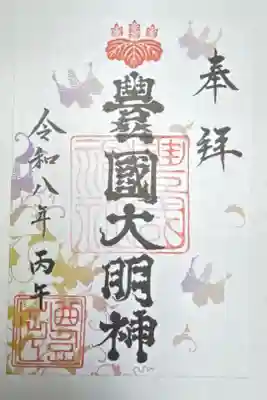 奉拝
豊國大明神
令和八年丙午